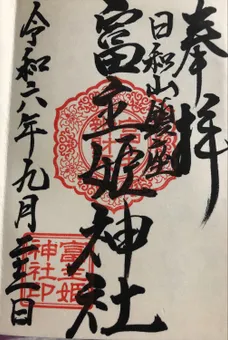 奉拝
日和山鎮座
富主姫神社
令和六年九月二十二日
富主姫
神社印